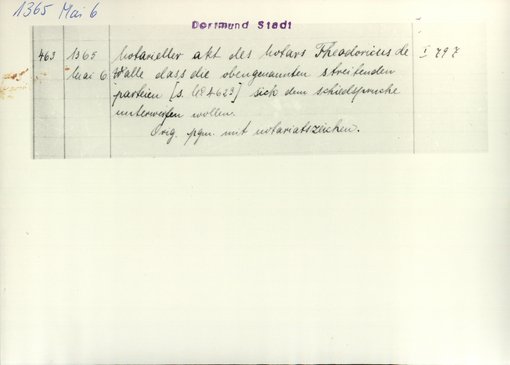 1365 Mai 6
Dortmund Stadt
463 1365 Notarieller akt des Notars Theodoricus de I 797
Mai 6. Walle dass die obengenannten streitenden
parteien [s. No 462] sich dem schiedspruche
unterwerfen wollen.
Orig. pgm. mit notariatszeichen.